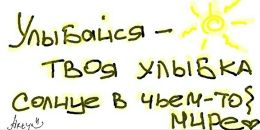 Улыбайся –
твоя улыбка
солнце в чьем-то
мире